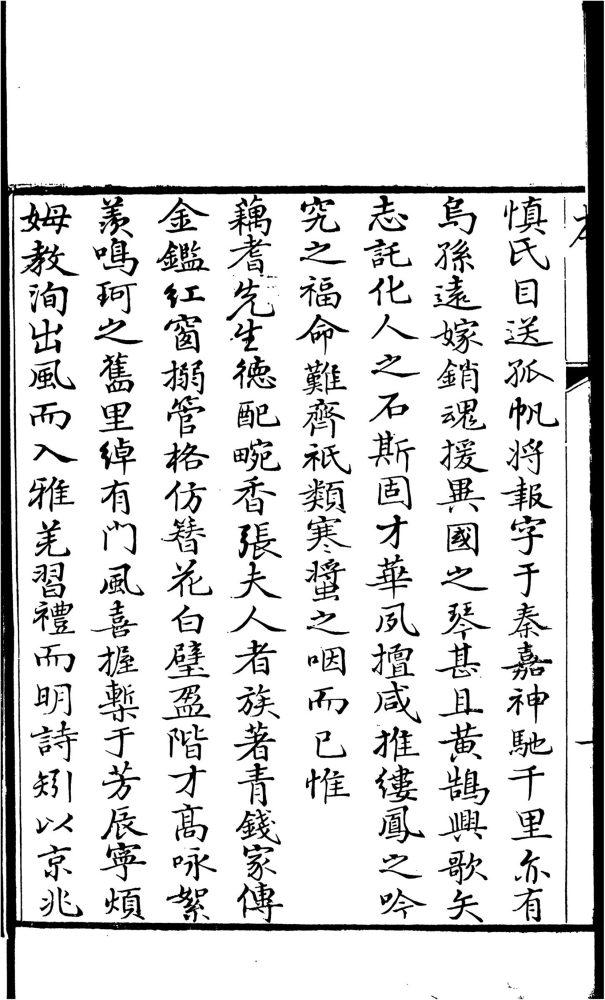 慎氏目送孤帆将報字于秦嘉神馳千里亦有
烏孫遠嫁銷魂援異國之琴甚且黃鵠興歌矢
志託化人之石斯固才華夙擅咸推縷鳳之吟
究之福命難齊祇類寒螿之咽而已惟
藕耆先生德配畹香張夫人者族著青錢家傳
金鑑紅窗搦管格仿簪花白璧盈階才高咏絮
羨鳴珂之舊里綽有門風喜握槧于芳辰寧煩
姆教洵出風而入雅羌習禮而明詩矧以京兆